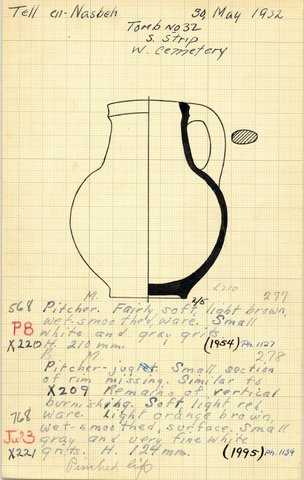 Tell en-Nasbeh 30, May 1932
Tomb No 32
S. Strip
W. Cemetery
L210
M. 2/5 277
568 Pitcher. Fairly soft, light brown,
wet-smoothed, ware. Small
P8 white and gray grits.
X220 H. 210 mm. (1954) Ph. 1127
M. 278
Pitcher-juglet. Small section
of rim missing. Similar to
X209 Remains of vertical
burnishing. Soft light red
768 ware. Light orange brown,
wet-smoothed, surface. Small
Ju33 gray and very fine white
X221 grits. H. 124 mm. (1995) Ph. 1134
Pinched lip